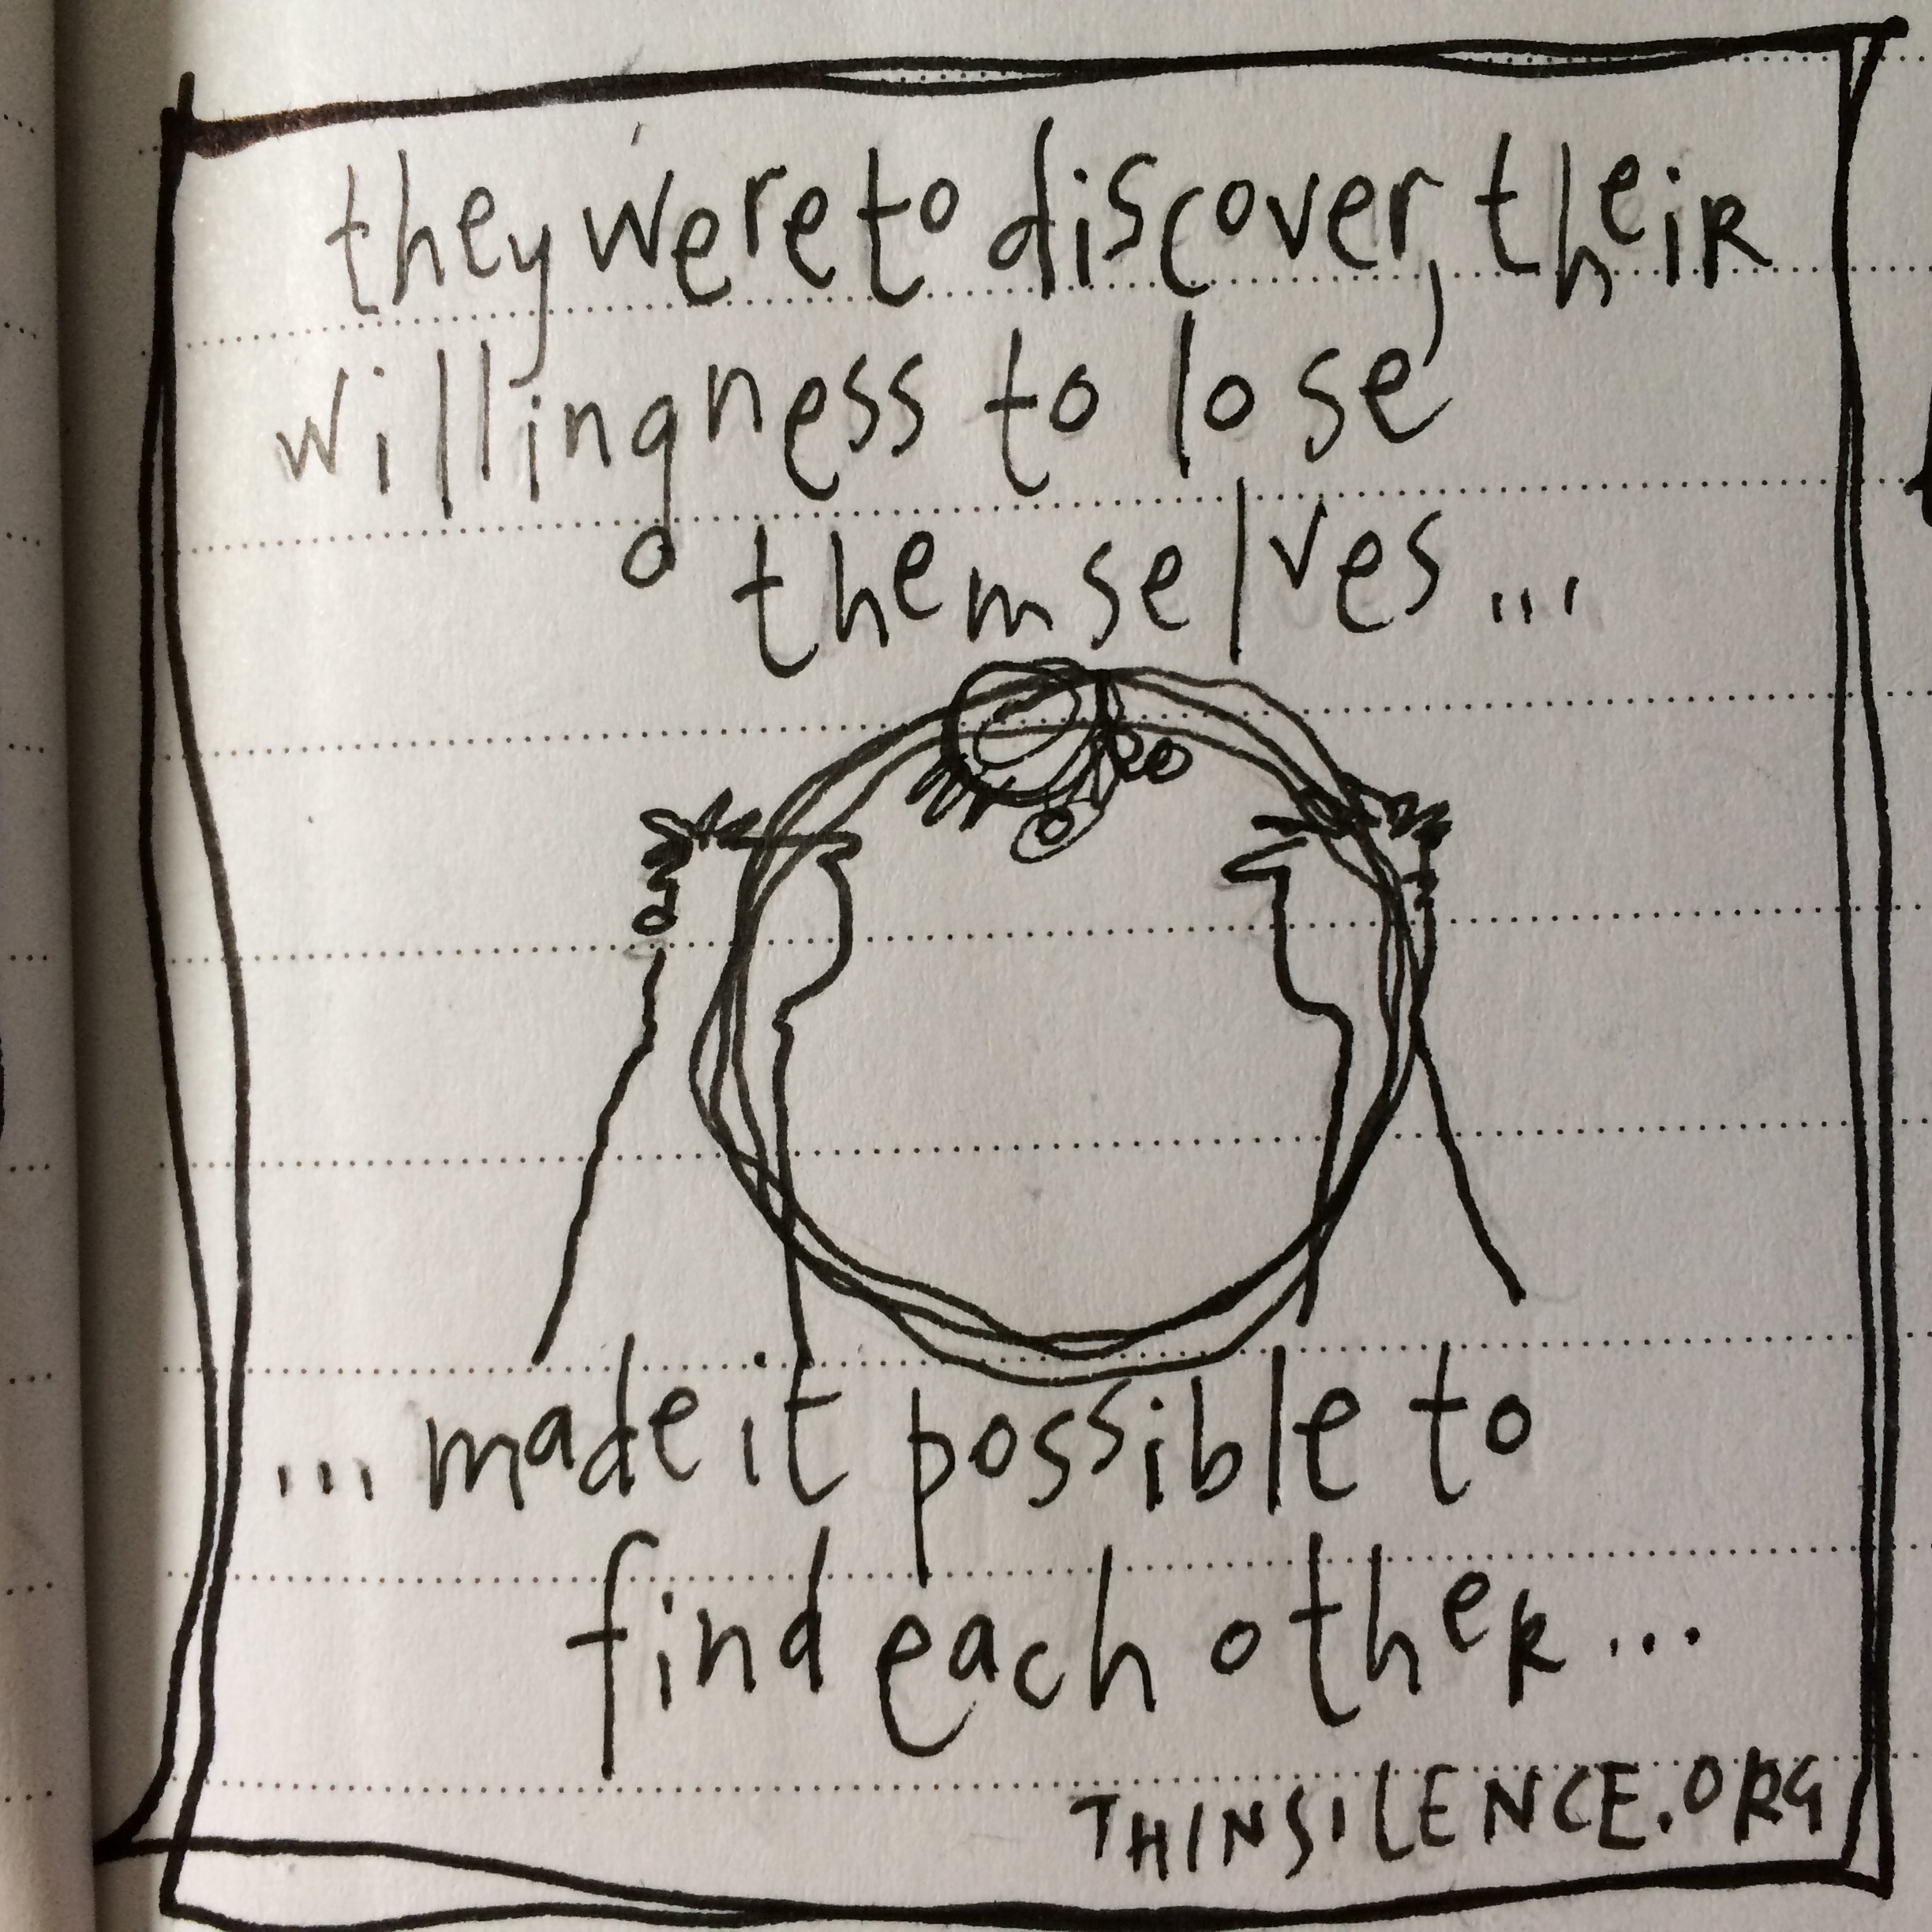 they were to discover, their
willingness to lose
themselves...
...made it possible to
find each other...
THINSILENCE.ORG